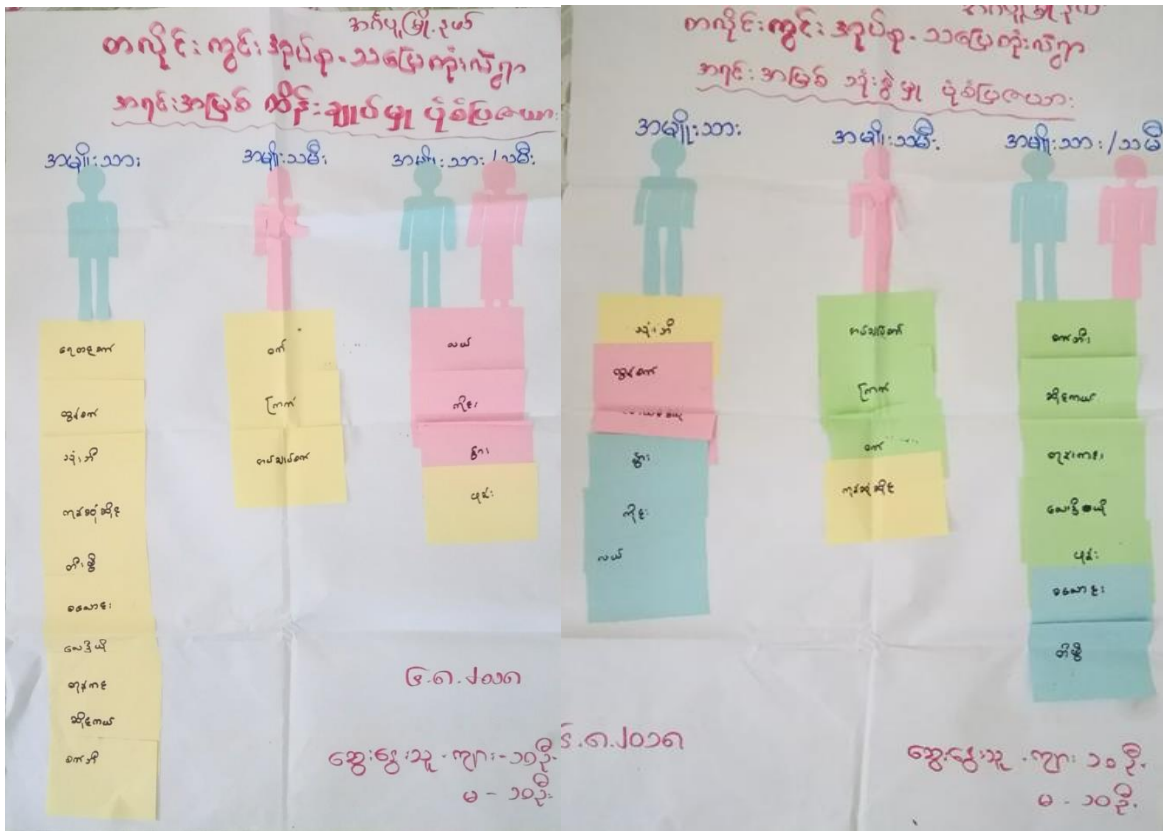 အင်္ဂပူမြို့နယ်
တလိုင်းကွင်းအုပ်စု - သပြေကုန်းလှရွာ
အရင်းအမြစ် ထိန်းချုပ်မှု ပုံစံပြဇယား
အမျိုးသား
အမျိုးသမီး
အမျိုးသား/သမီး
ရေတင်စက်
ထွန်စက်
သုံးဘီး
ကုန်စုံဆိုင်
တီဗွီ
စလောင်း
လေဒီယို
ဆိုင်ကယ်
စက်ဘီး
ဝက်
ကြက်
လယ်
ကိုင်း
နွား
ဖုန်း
၆.၈.၂၀၁၈
ဆွေးနွေးသူ - ကျား - ၁၀ဦး
မ - ၁၀ဦး
တလိုင်းကွင်းအုပ်စု - သပြေကုန်းလှရွာ
အရင်းအမြစ် သုံးစွဲမှု ပုံစံပြဇယား
အမျိုးသား
အမျိုးသမီး
အမျိုးသား/သမီး
သုံးဘီး
ထွန်စက်
နွား
ကိုင်း
လယ်
ကြက်
ဝက်
ကုန်စုံဆိုင်
စက်ဘီး
ဆိုင်ကယ်
ဖုန်း
စလောင်း
တီဗွီ
၆.၈.၂၀၁၈
ဆွေးနွေးသူ - ကျား ၁၀ ဦး
မ - ၁၀ ဦး